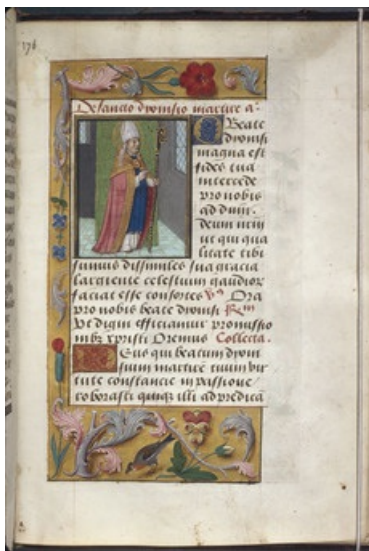 176
De sancto dyonisio martire a:
O Beate
dyonisi
magna est
fides tua
intercede
pro nobis
ad dnm.
deum nrm
ut qui qua
litate tibi
sumus dissimiles sua gracia
largiente celestium gaudior
faciat esse consortes Vs Ora
pro nobis beate dyonisi Rm
Ut digni efficiamur promissio
nibz xpristi Oremus Collecta.
Deus qui beatum dyoni
sium martirē tuum vir
tute constancie in passione
roborasti quiqz illi ad predicā